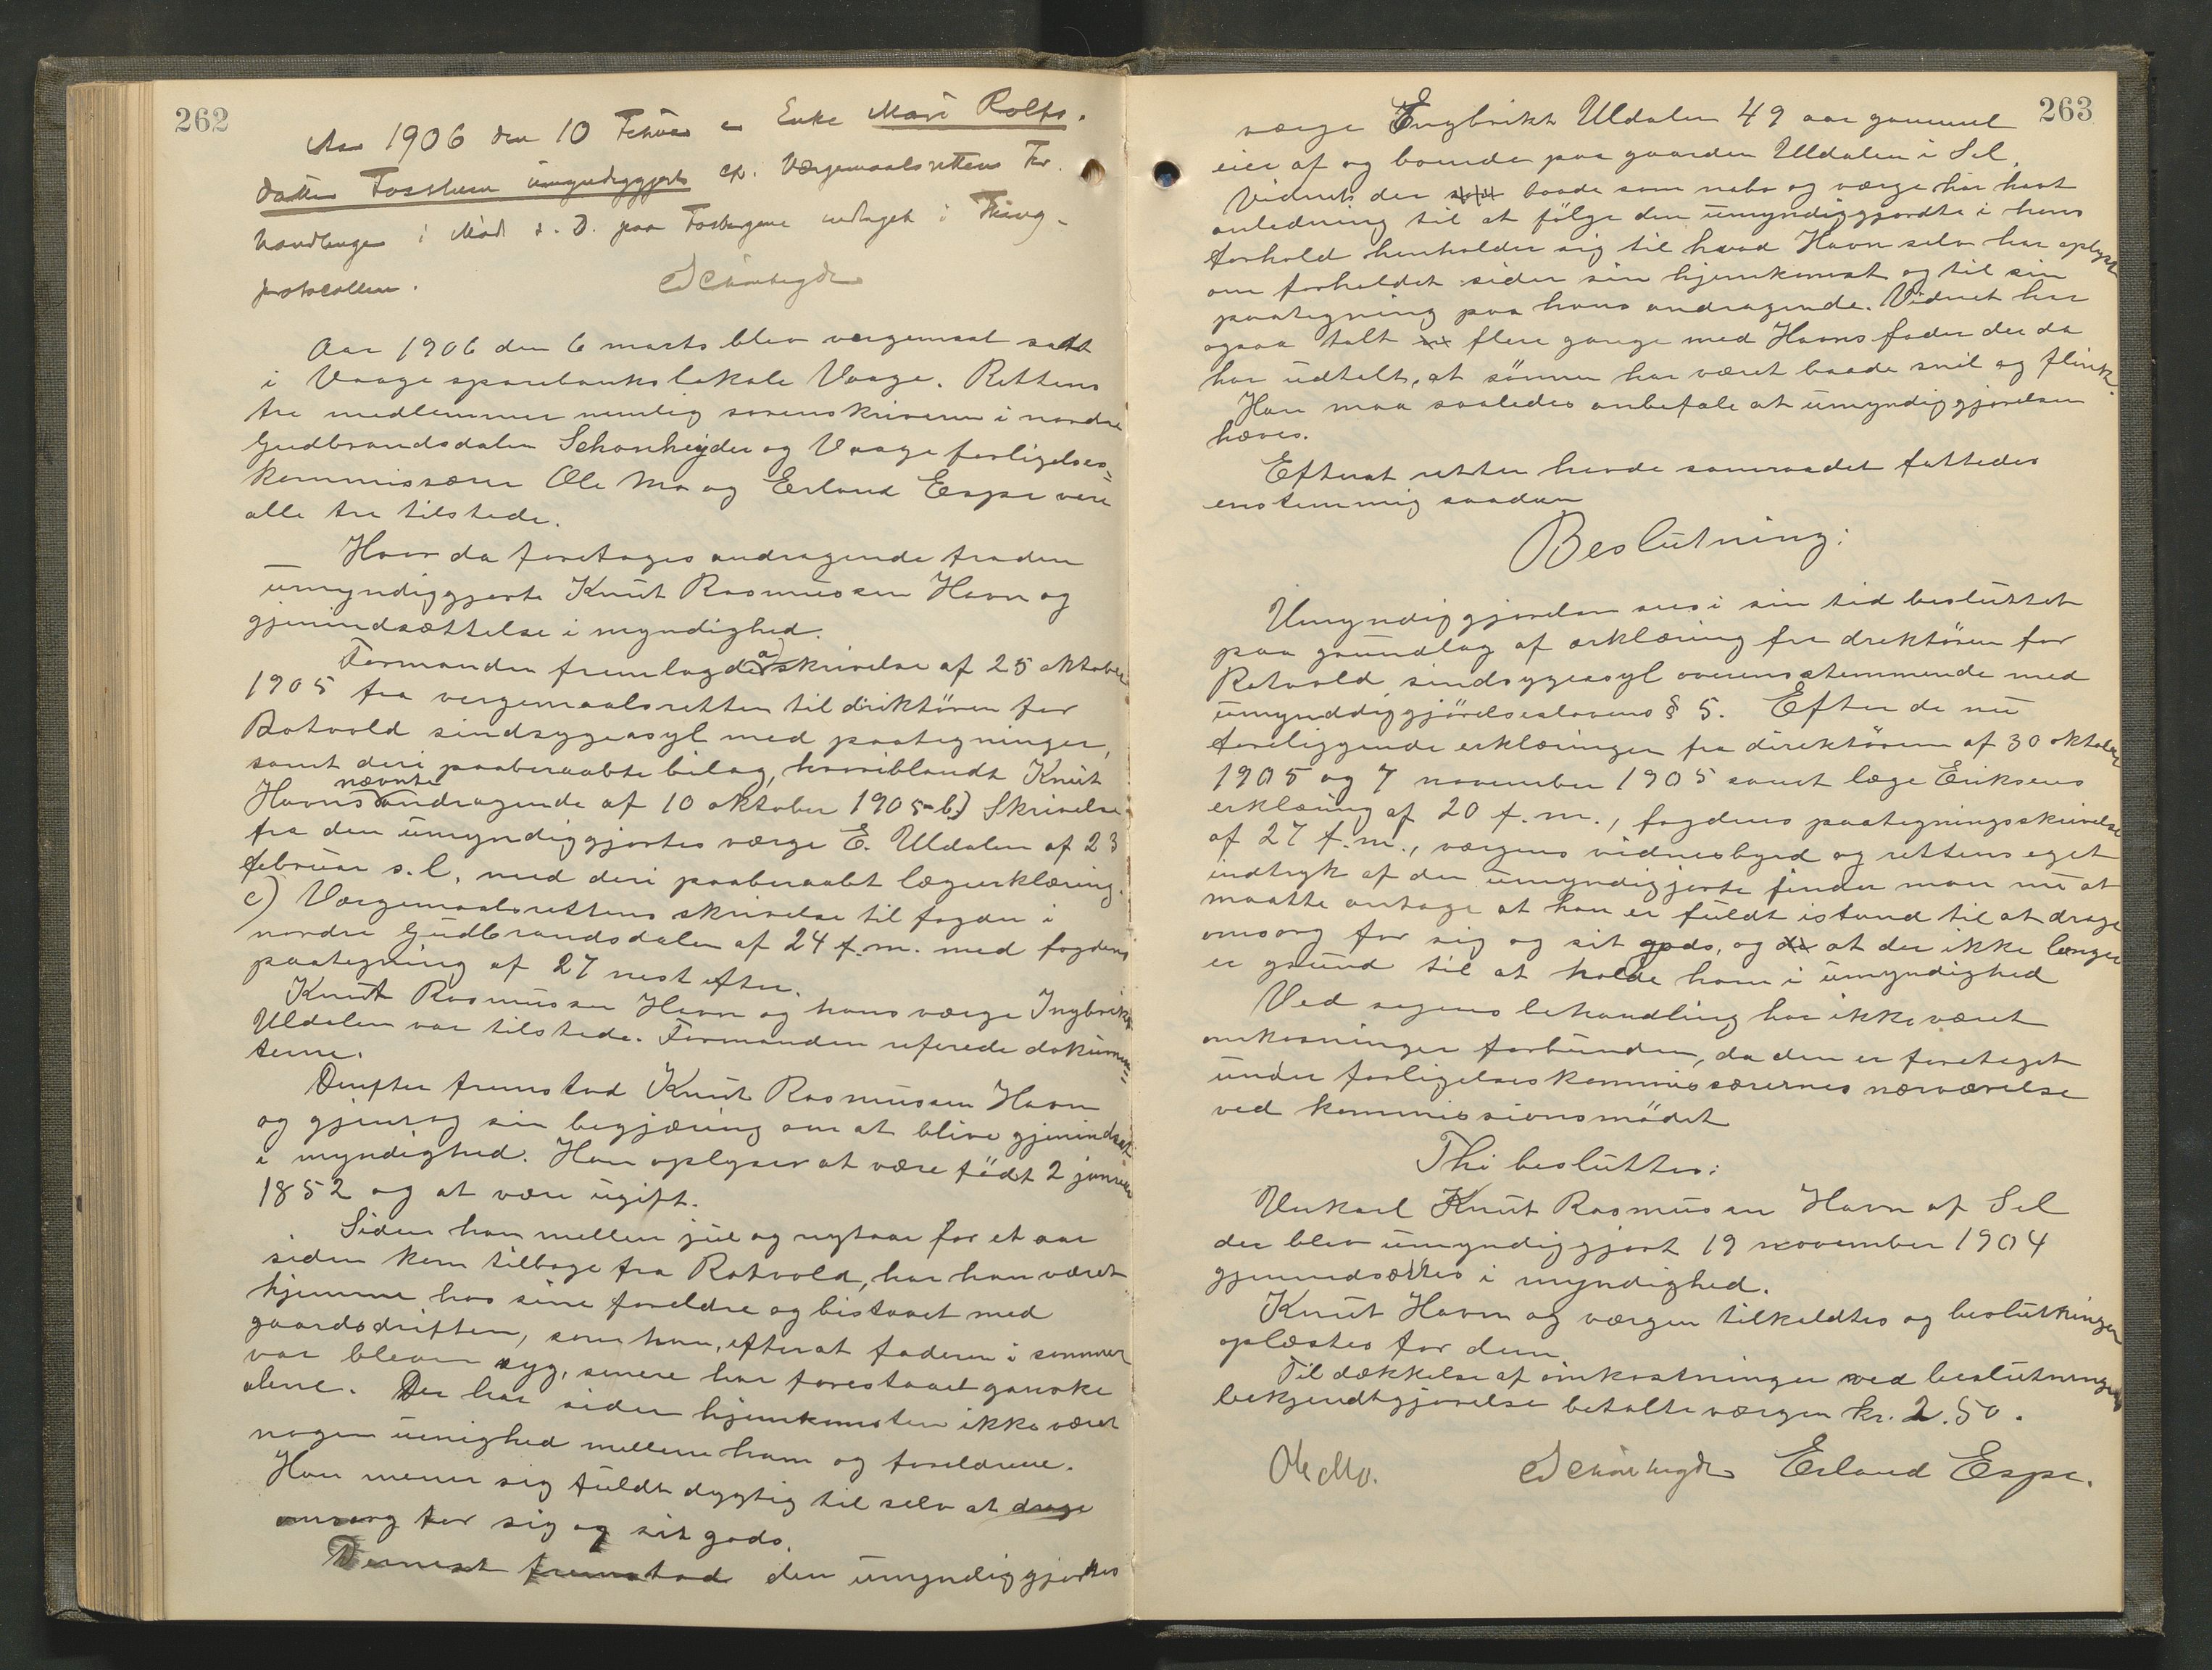 262
Aar 1906 den 10 Februar er Enke Mari Rolfs-
datter Fosslien umyndiggjort cfr. Værgemaalsrettens For-
handlinger i Møde s. D. paa Fosbergene indtaget i Thing-
protocollen.
Schönheyder
Aar 1906 den 6 marts blev vergemaal satt
i Vaage sparebanks lokale Vaage. Rettens
tre medlemmer nemlig sorenskriveren i nordre
Gudbrandsdalen Schonheyder og Vaage forligelses-
kommissærer Ole Mo og Erland Espe vare
alle tre tilstede.
Hvor da foretages andragende fra den
umyndiggjorte Knut Rasmussen Havn og
gjenindsættelse i myndighed.
Formanden fremlagde a) skrivelse af 25 oktober
1905 fra vergemaalsretten til direktören for
Rotvold sindsygeasyl med paategninger,
samt deri paaberaabte bilag, hvoriblandt Knut
Havns nævnte andragende af 10 oktober 1905 - b) Skrivelse
fra den umyndiggjortes værge E. Uldalen af 23
februar s. l. med deri paaberaabt lægeerklæring.
c) Værgemaalsrettens skrivelse til fogden i
nordre Gudbrandsdalen af 24 f. m. med fogdens
paategning af 27 nest efter.
Knut Rasmussen Havn og hans værge Ingbrikt
Uldalen var tilstede. Formanden referede dokumen-
terne.
Derefter fremstod Knut Rasmussen Havn
og gjentog sin begjæring om at blive gjenindsat
i myndighed. Han oplyser at være födt 2 januar
1852 og at være ugift.
Siden han mellem jul og nytaar for et aar
siden kom tilbage fra Rotvold, har han været
hjemme hos sine foreldre og bistaaet med
gaardsdriften, som han, efterat faderen i sommer
var bleven syg, senere har forestaaet ganske
alene. Der har siden hjemkomsten ikke været
nogen uenighed mellem ham og foreldrene.
Han mener sig fuldt dygtig til selv at drage
omsorg for sig og sit gods.
Dernest fremstod den umyndiggjortes
263
værge Engbrikt Uldalen 49 aar gammel
eier af og boende paa gaarden Uldalen i Sel.
Vidnet der som baade som nabo og værge har havt
anledning til at følge den umyndiggjordte i hans
forhold henholder sig til hvad Havn selv har oplyst
om forholdet siden sin hjemkomst og til sin
paategning paa hans andragende. Vidnet har
ogsaa talt flere gange med Havns fader der da
har udtalt, at sönnen har været baade snil og flink.
Han maa saaledes anbefale at umyndiggjørelsen
hæves.
Efterat retten havde samraadet fattedes
enstemmig saadan
Beslutning:
Umyndiggjørelsen sees i sin tid besluttet
paa grundlag af erklæring fra drektören for
Rotvold sindsygeasyl overensstemmende med
umynddiggjörelseslovens § 5. Efter de nu
foreliggende erklæringer fra direktören af 30 oktober
1905 og 7 november 1905 samt læge Eriksens
erklæring af 20 f. m., fogdens paategningsskrivelse
af 27 f. m., værgens vidnesbyrd og rettens eget
indtryk af den umyndigjorte finder man nu at
maatte antage at han er fuldt istand til at drage
omsorg for sig og sit gods, og at der ikke længer
er grund til at holde ham i umyndighed
Ved sagens behandling har ikke været
omkosninger forbunden, da den er foretaget
under forligelseskommissærernes nærværelse
ved kommissionsmödet
Thi besluttes:
Unkarl Knut Rasmussen Havn af Sel
der blev umyndiggjort 19 november 1904
gjenindsættes i myndighed.
Knut Havn og værgen tilkaldtes og beslutningen
oplæstes for dem
Til dækkelse af omkostninger ved beslutningens
bekjendtgjørelse betalte værgen kr. 2.50.
Ole Mo. Schönheyder Erland Espe.